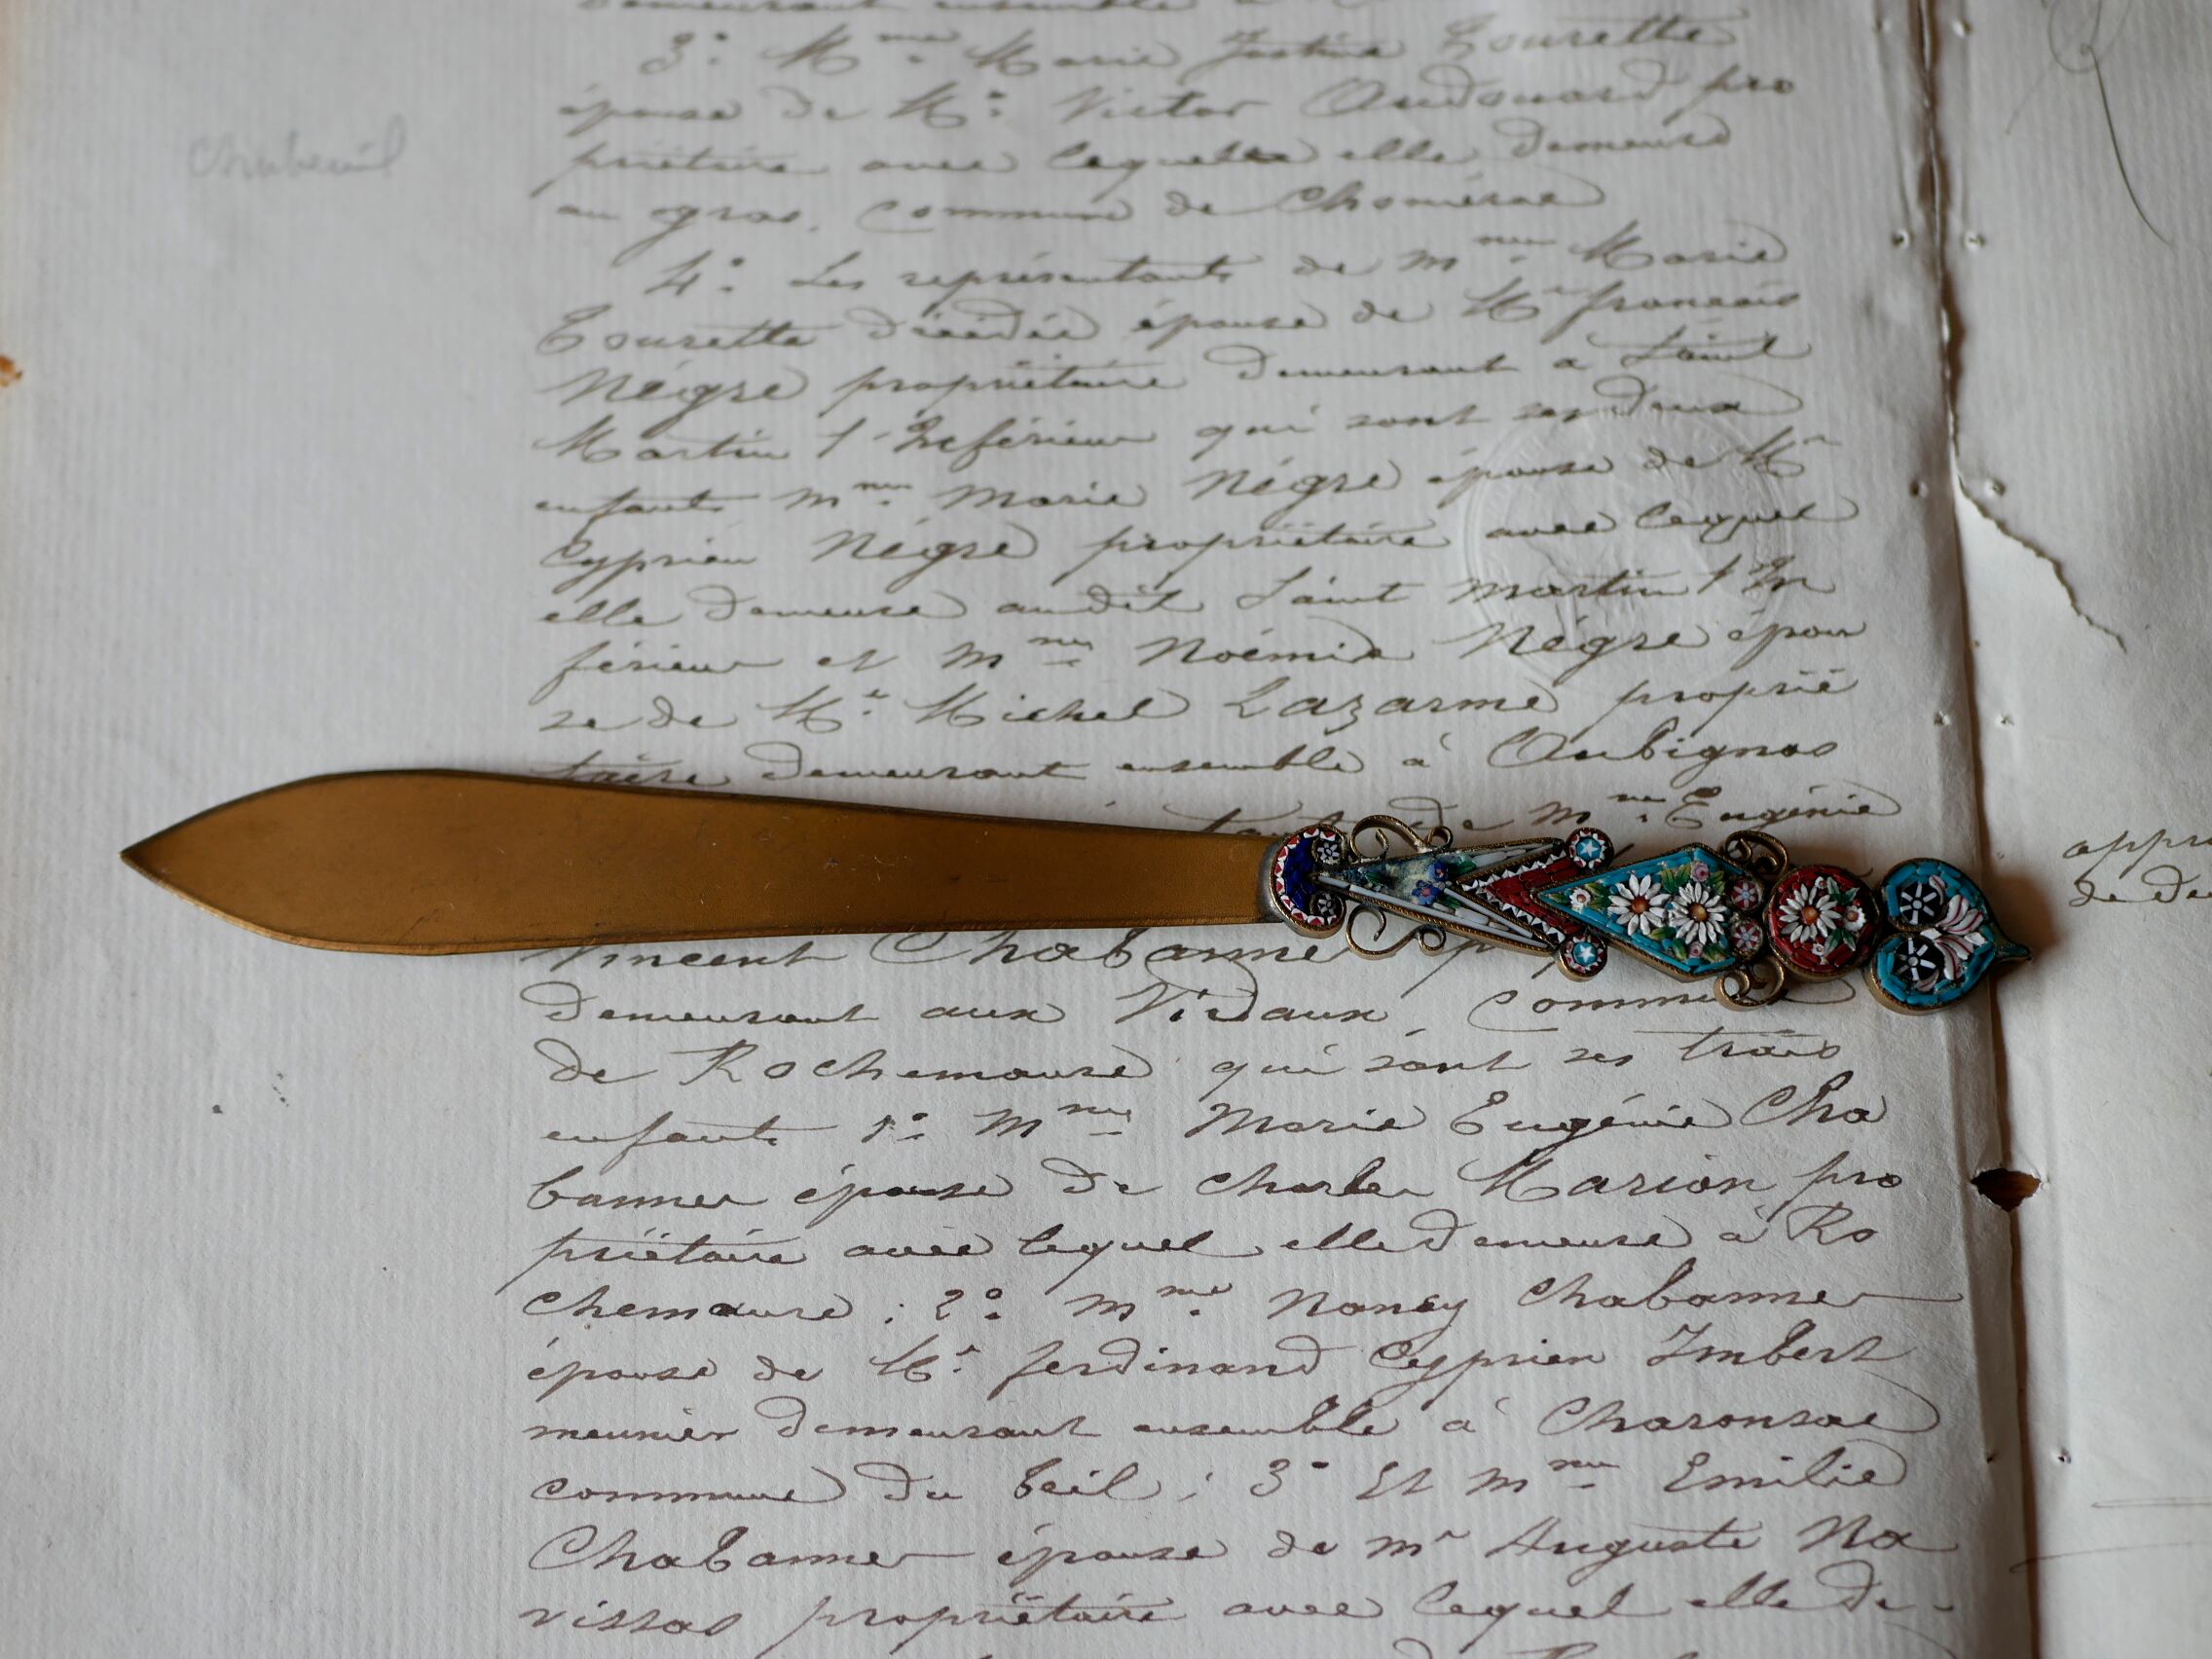 demeurant ensemble à
3° Mme Marie Justine Tourette
épouse de Mr Victor Audouard pro
priétaire avec lequelle elle demeure
au gras, commune de Chomérac
Chabeuil
4° Les représentants de mme Marie
Tourette décédée épouse de Mr françois
Nègre propriétaire demeurant à Saint
Martin l'Inférieur qui sont ses deux
enfants mme Marie Nègre épouse de Mr
Cyprien Nègre propriétaire avec lequel
elle demeure audit Saint Martin l'In
férieur et mme Noémie Nègre épou
se de Mr Michel Lazarme proprié
taire demeurant ensemble à Aubignas
de mme Eugénie
appr
de de
Vincent Chabanne
demeurant aux Vidaux, commune
de Rochemaure qui sont ses trois
enfants 1° mme Marie Eugénie Cha
bannes épouse de Charles Marion pro
priétaire avec lequel elle demeure à Ro
chemaure ; 2° mme Nancy Chabannes
épouse de Mr ferdinand Cyprien Imbert
meunier demeurant ensemble à Charonsac
commune du teil ; 3° Et mme Emilie
Chabannes épouse de mr Auguste Na
vissas propriétaire avec lequel elle de-